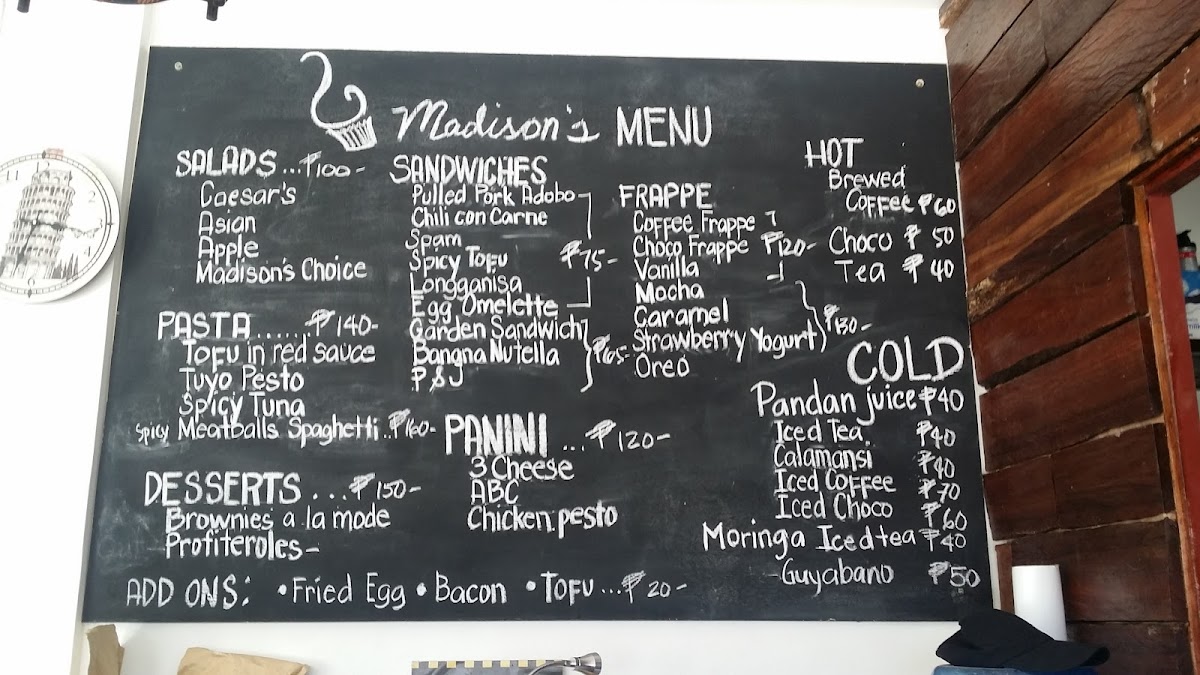 Madison's MENU
SALADS...₱100-
Caesar's
Asian
Apple
Madison's Choice
PASTA......₱140-
Tofu in red sauce
Tuyo Pesto
Spicy Tuna
Spicy Meatballs Spaghetti..₱160-
DESSERTS...₱150-
Brownies a la mode
Profiteroles-
SANDWICHES
Pulled Pork Adobo
Chili con Carne
Spam
Spicy Tofu ₱75-
Longganisa
Egg Omelette
Garden Sandwich
Banana Nutella ₱65-
P&J
PANINI...₱120-
3 Cheese
ABC
Chicken pesto
FRAPPE
Coffee Frappe
Choco Frappe ₱120-
Vanilla
Mocha
Caramel ₱130-
Strawberry Yogurt
Oreo
HOT
Brewed
Coffee ₱60
Choco ₱50
Tea ₱40
COLD
Pandan juice ₱40
Iced Tea ₱40
Calamansi ₱40
Iced Coffee ₱70
Iced Choco ₱60
Moringa Iced tea ₱40
Guyabano ₱50
ADD ONS: •Fried Egg •Bacon •Tofu...₱20-
11
2
4